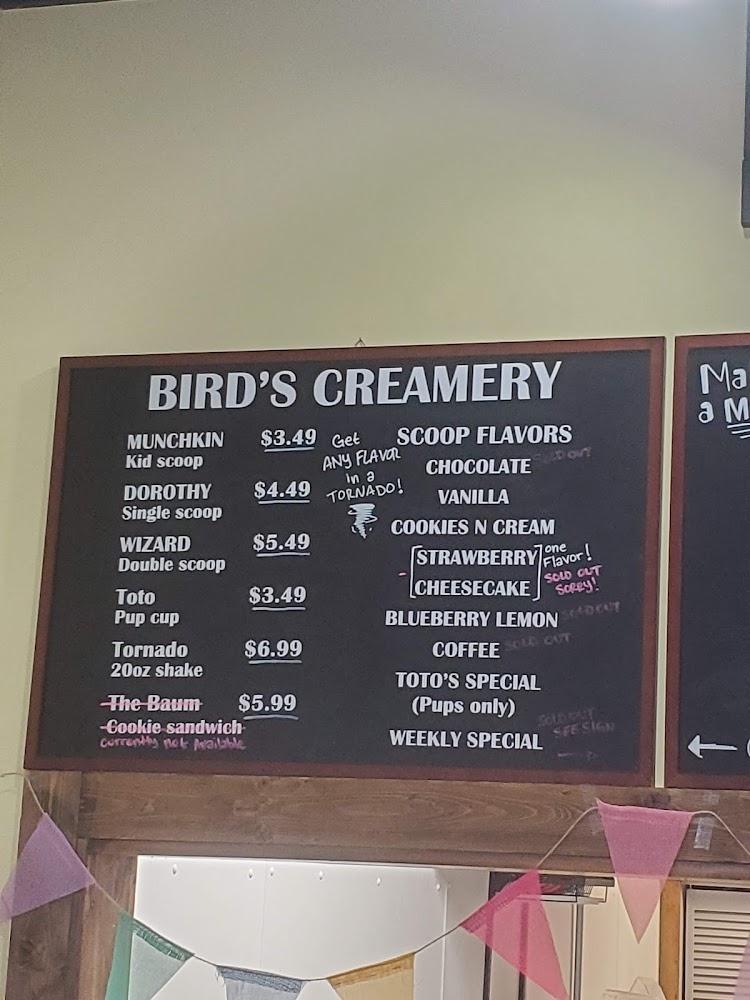 BIRD'S CREAMERY
MUNCHKIN $3.49
Kid scoop
DOROTHY $4.49
Single scoop
WIZARD $5.49
Double scoop
Toto $3.49
Pup cup
Tornado $6.99
20oz shake
The Baum $5.99
Cookie sandwich
Currently not Available
Get
ANY FLAVOR
in a
TORNADO!
SCOOP FLAVORS
CHOCOLATE SOLD OUT
VANILLA
COOKIES N CREAM
STRAWBERRY
CHEESECAKE
one
Flavor!
SOLD OUT
SORRY!
BLUEBERRY LEMON SOLD OUT
COFFEE SOLD OUT
TOTO'S SPECIAL
(Pups only)
WEEKLY SPECIAL
SOLD OUT
SEE SIGN
Ma
a M